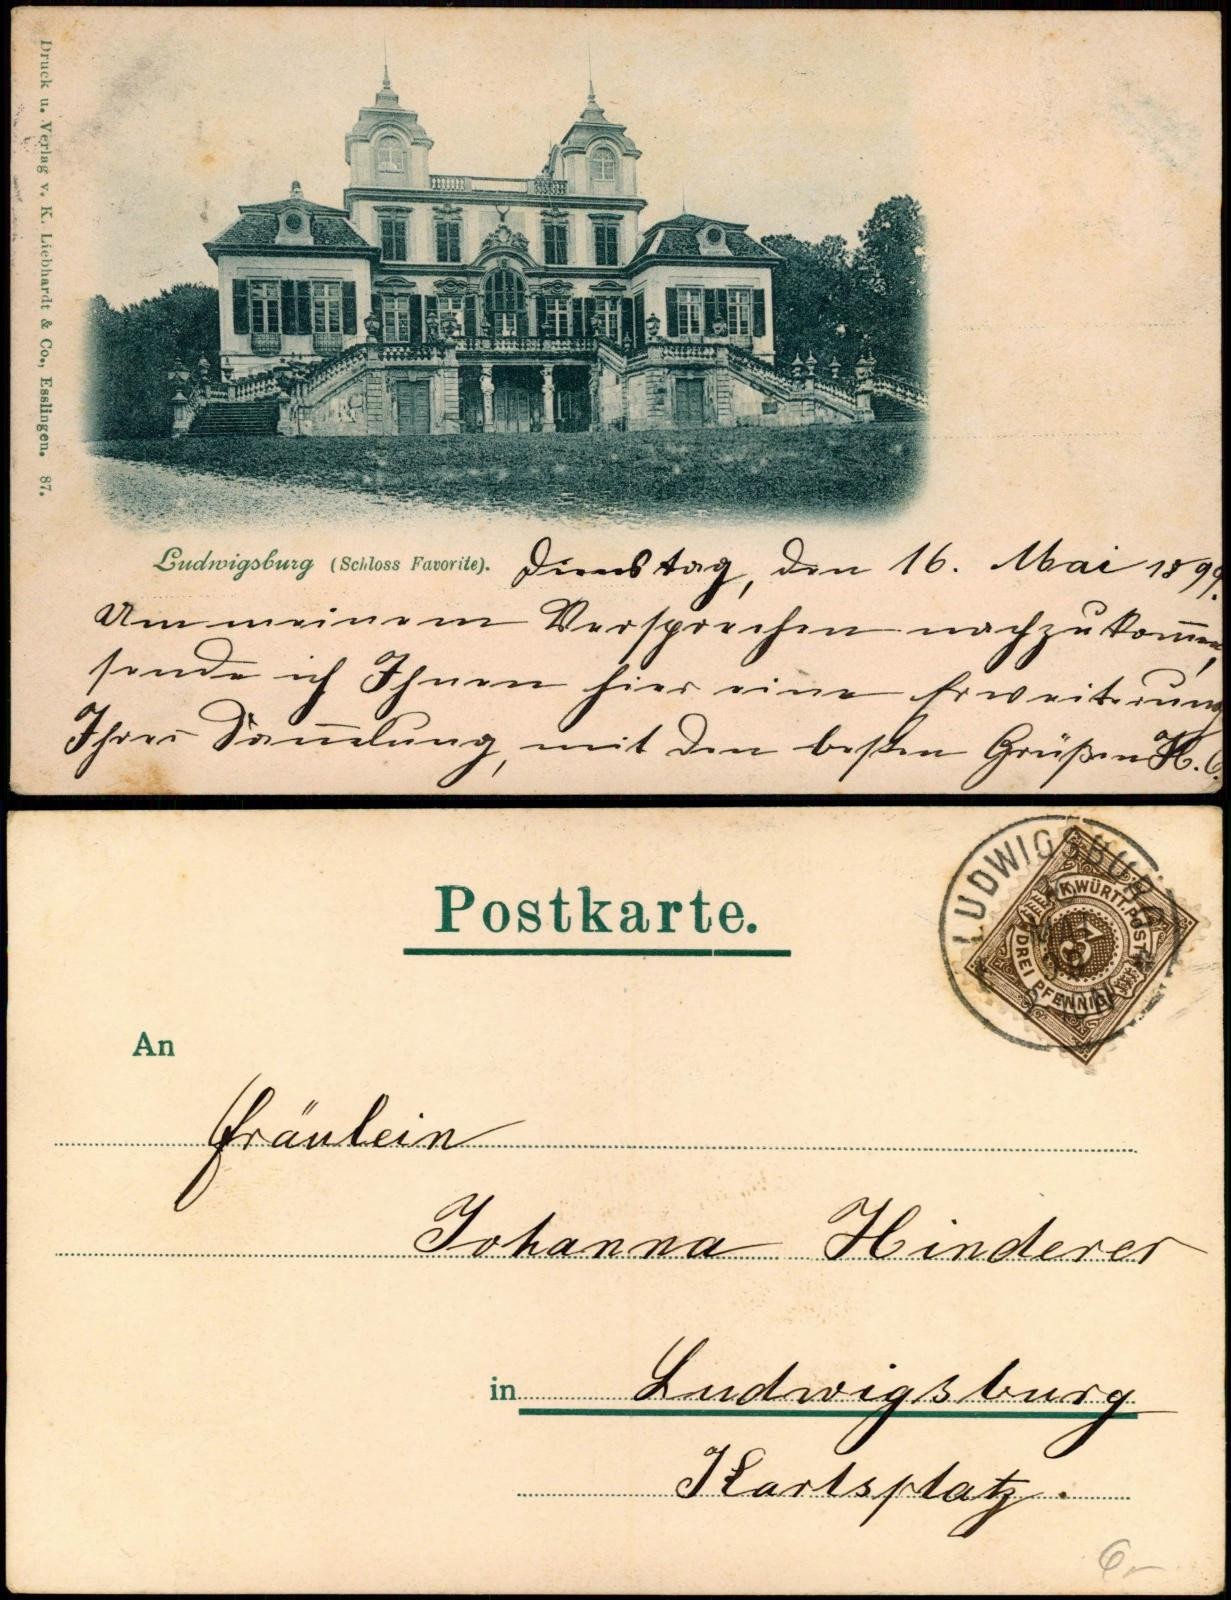 Druck u. Verlag v. K. Liebhardt & Co., Esslingen. 87.
Ludwigsburg (Schloss Favorite).
Dienstag, den 16. Mai 1899.
Um meinem Versprechen nachzukom̅en,
sende ich Ihnen hier eine Erweiterung
Ihrer Sam̅lung, mit den besten Grüßen H.
Postkarte.
LUDWIGSBURG
K. WÜRTT. POST
3
DREI PFENNIG
An
Fräulein
Johanna Hinderer
in Ludwigsburg
Karlsplatz.
6,-